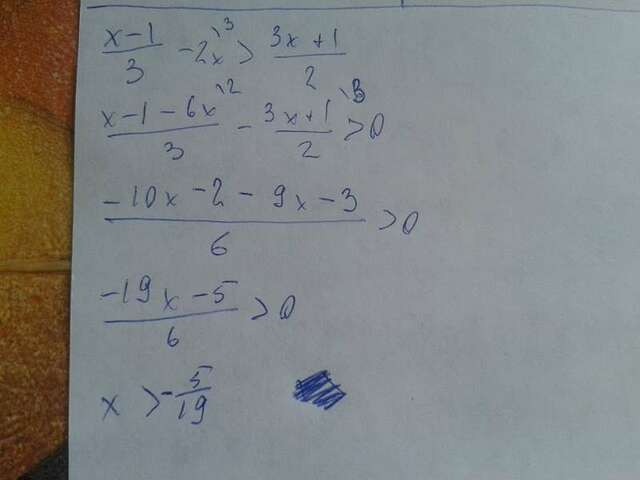 (x-1)/3 - 2x\3 > (3x+1)/2
(x-1-6x\2)/3 - (3x+1\3)/2 > 0
(-10x-2-9x-3)/6 > 0
(-19x-5)/6 > 0
x > -5/19